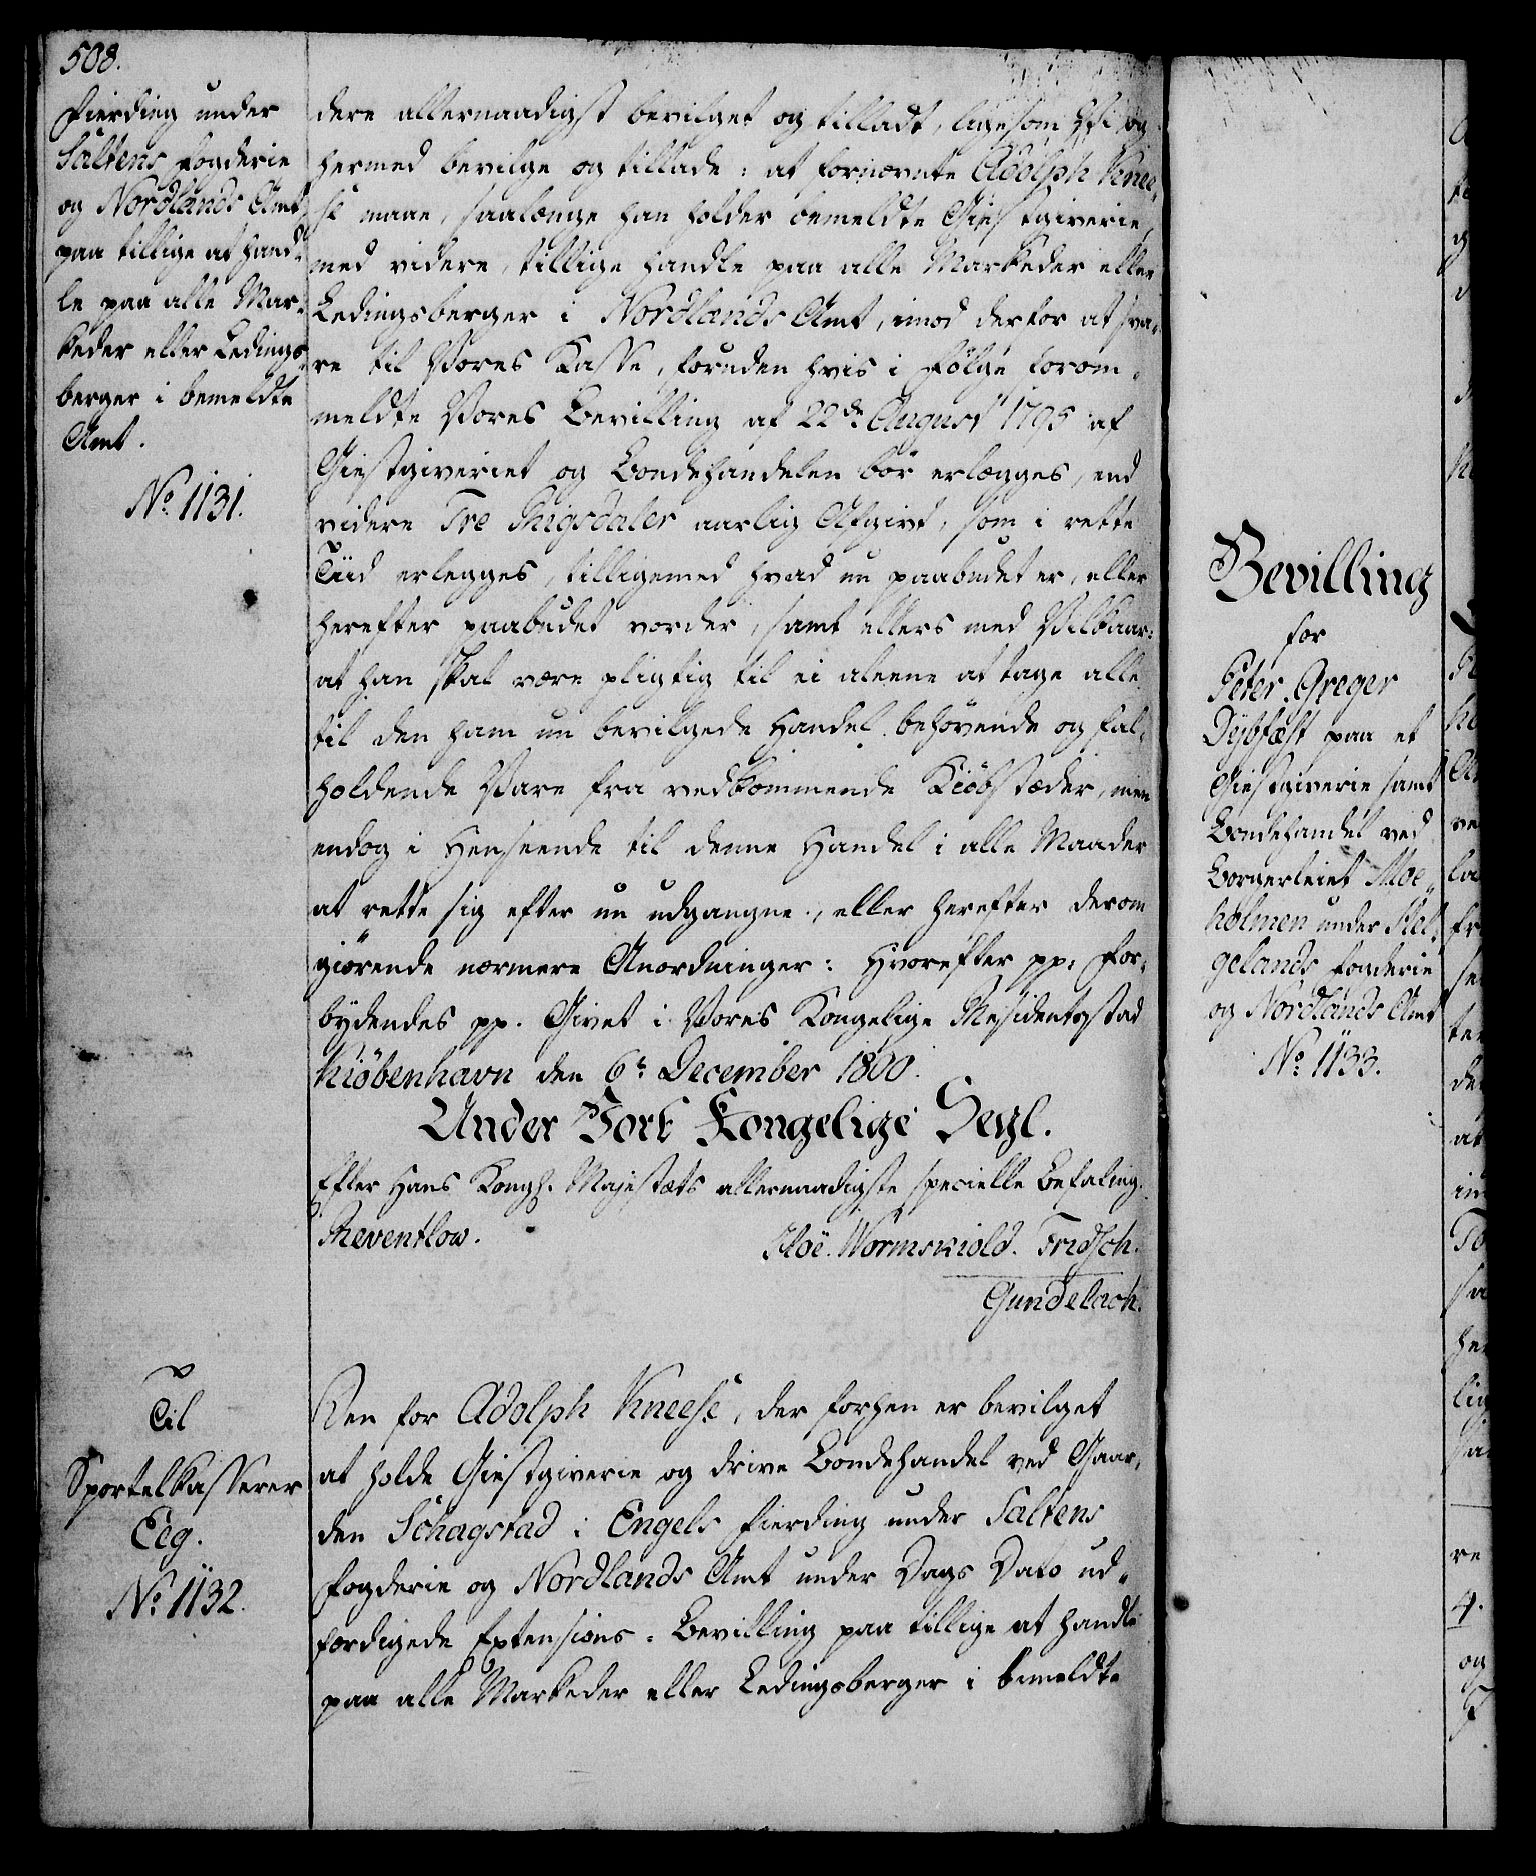 508.
Fierding under
Saltens Fogderie
og Nordlands Amt
paa tillige at hand-
le paa alle Mar-
keder eller Ledings-
berger i bemeldte
Amt.
No. 1131.
dere allernaadigst bevilget og tilladt, ligesom Vi og
hermed bevilge og tillade: at fornævnte Adolph Knee-
se maae, saalænge han holder bemeldte Giestgiverie,
med videre, tillige handle paa alle Markeder eller
Ledingsberger i Nordlands Amt, imod derfor at sva-
re til Vores Kasse, foruden hvis i Følge forom-
meldte Vores Bevilling af 22de August 1795 af
Giestgiveriet og Bondehandelen bør erlægges, end
videre Tre Rigsdaler aarlig Afgivt, som i rette
Tiid erlegges, tilligemed hvad nu paabudet er, eller
herefter paabudet vorder, samt ellers med Vilkaar:
at han skal være pligtig til ei aleene at tage alle
til den ham nu bevilgede Handel behøvende og fal-
holdende Vare fra vedkommende Kiøbstæder, men
endog i Henseende til denne Handel i alle Maader
at rette sig efter nu udgangne, eller herefter derom
giørende nærmere Anordninger: Hvorefter pp. For-
bydendes pp. Givet i Vores Kongelige Residentsstad
Kiöbenhavn den 6te December 1800.
Under Vort Kongelige Segl.
Efter Hans Kongl. Majestæts allernaadigste specielle Befaling.
Reventlow.
Hoë. Wormskiold. Fridsch.
Gundelach.
Til
Sportelkasserer
Eeg.
No. 1132.
Den for Adolph Kneese, der forhen er bevilget
at holde Giestgiverie og drive Bondehandel ved Gaar-
den Schagstad i Engels Fierding under Saltens
Fogderie og Nordlands Amt under Dags Dato ud-
færdigede Extensions-Bevilling paa tillige at handle
paa alle Markeder eller Ledingsberger i bemeldte
Bevilling
for
Peter Greger
Dybfæst paa et
Giestgiverie samt
Bondehandel ved
Borgerleiet Moe-
holmen under Hel-
gelands Fogderie
og Nordlands Amt
No. 1133.